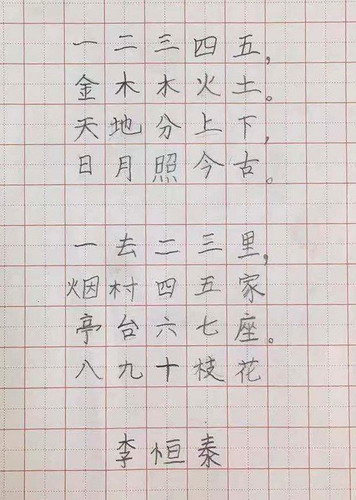 一二三四五,
金木木火土。
天地分上下,
日月照今古。
一去二三里,
烟村四五家
亭台六七座。
八九十枝花
李恒泰